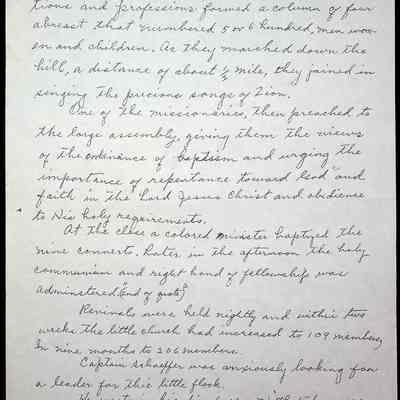 tions and professions formed a column of four
abreast that numbered 5 or 6 hundred, men wom-
en and children. As they marched down the
hill, a distance of about ½ mile, they joined in
singing the precious songs of Zion.
One of the missionaries, then preached to
the large assembly, giving them the views
of the ordinance of baptism and urging the
importance of repentance toward God and
faith in the Lord Jesus Christ and obedience
to His holy requirements.
At the close a colored minister baptized the
nine converts. Later in the afternoon the holy
communion and right hand of fellowship was
adminstered. (End of quote)
Revivals were held nightly and within two
weeks the little church had increased to 109 members,
In nine months to 206 members.
Captain Schaeffer was anxiously looking for
a leader for this little flock.